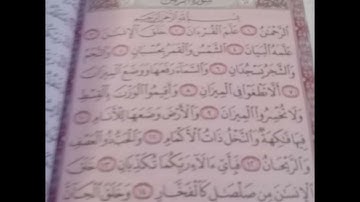 سورة الرحمن
بسم الله الرحمن الرحيم
الرَّحْمَٰنُ ١ عَلَّمَ الْقُرْءَانَ ٢ خَلَقَ الْإِنسَٰنَ ٣
عَلَّمَهُ الْبَيَانَ ٤ الشَّمْسُ وَالْقَمَرُ بِحُسْبَانٍ ٥ وَالنَّجْمُ
وَالشَّجَرُ يَسْجُدَانِ ٦ وَالسَّمَاءَ رَفَعَهَا وَوَضَعَ الْمِيزَانَ
٧ أَلَّا تَطْغَوْا فِي الْمِيزَانِ ٨ وَأَقِيمُوا الْوَزْنَ بِالْقِسْطِ
وَلَا تُخْسِرُوا الْمِيزَانَ ٩ وَالْأَرْضَ وَضَعَهَا لِلْأَنَامِ ١٠
فِيهَا فَٰكِهَةٌ وَالنَّخْلُ ذَاتُ الْأَكْمَامِ ١١ وَالْحَبُّ ذُو الْعَصْفِ
وَالرَّيْحَانُ ١٢ فَبِأَيِّ ءَالَاءِ رَبِّكُمَا تُكَذِّبَانِ ١٣ خَلَقَ
الْإِنسَٰنَ مِن صَلْصَٰلٍ كَالْفَخَّارِ ١٤ وَخَلَقَ الْجَانَّ